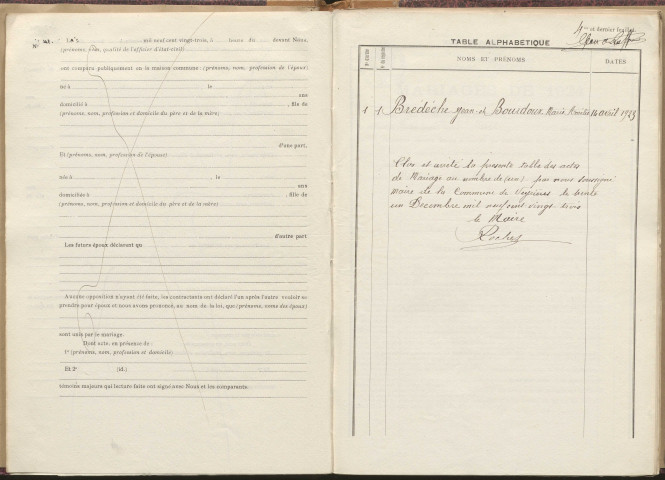 N° Le mil neuf cent vingt-trois, à heure du devant Nous,
(prénoms, nom, qualité de l'officier d'état-civil)
ont comparu publiquement en la maison commune : (prénoms, nom, profession de l'époux)
né à , le
ans
domicilié à , fils de
(prénoms, nom, profession et domicile du père et de la mère)
d'une part,
Et (prénoms, nom, profession de l'épouse)
née à , le
ans
domiciliée à , fille de
(prénoms, nom, profession et domicile du père et de la mère)
d'autre part
Les futurs époux déclarent qu
Aucune opposition n'ayant été faite, les contractants ont déclaré l'un après l'autre vouloir se
prendre pour époux et nous avons prononcé, au nom de la loi, que (prénoms, noms des époux)
sont unis par le mariage.
Dont acte, en présence de :
1° (prénoms, nom, profession et domicile)
Et 2° (id.)
témoins majeurs qui lecture faite ont signé avec Nous et les comparants.
4me et dernier feuillet.
TABLE ALPHABÉTIQUE
NOMS ET PRÉNOMS
DATES
1 1 Bredèche Jean et Bourdoux Maria 14 avril 1923
Clos et arrêté la présente table des actes
de Mariage au nombre de (un) par nous soussigné
maire de la Commune de le trente
un Décembre mil neuf cent vingt trois
le Maire
Roches